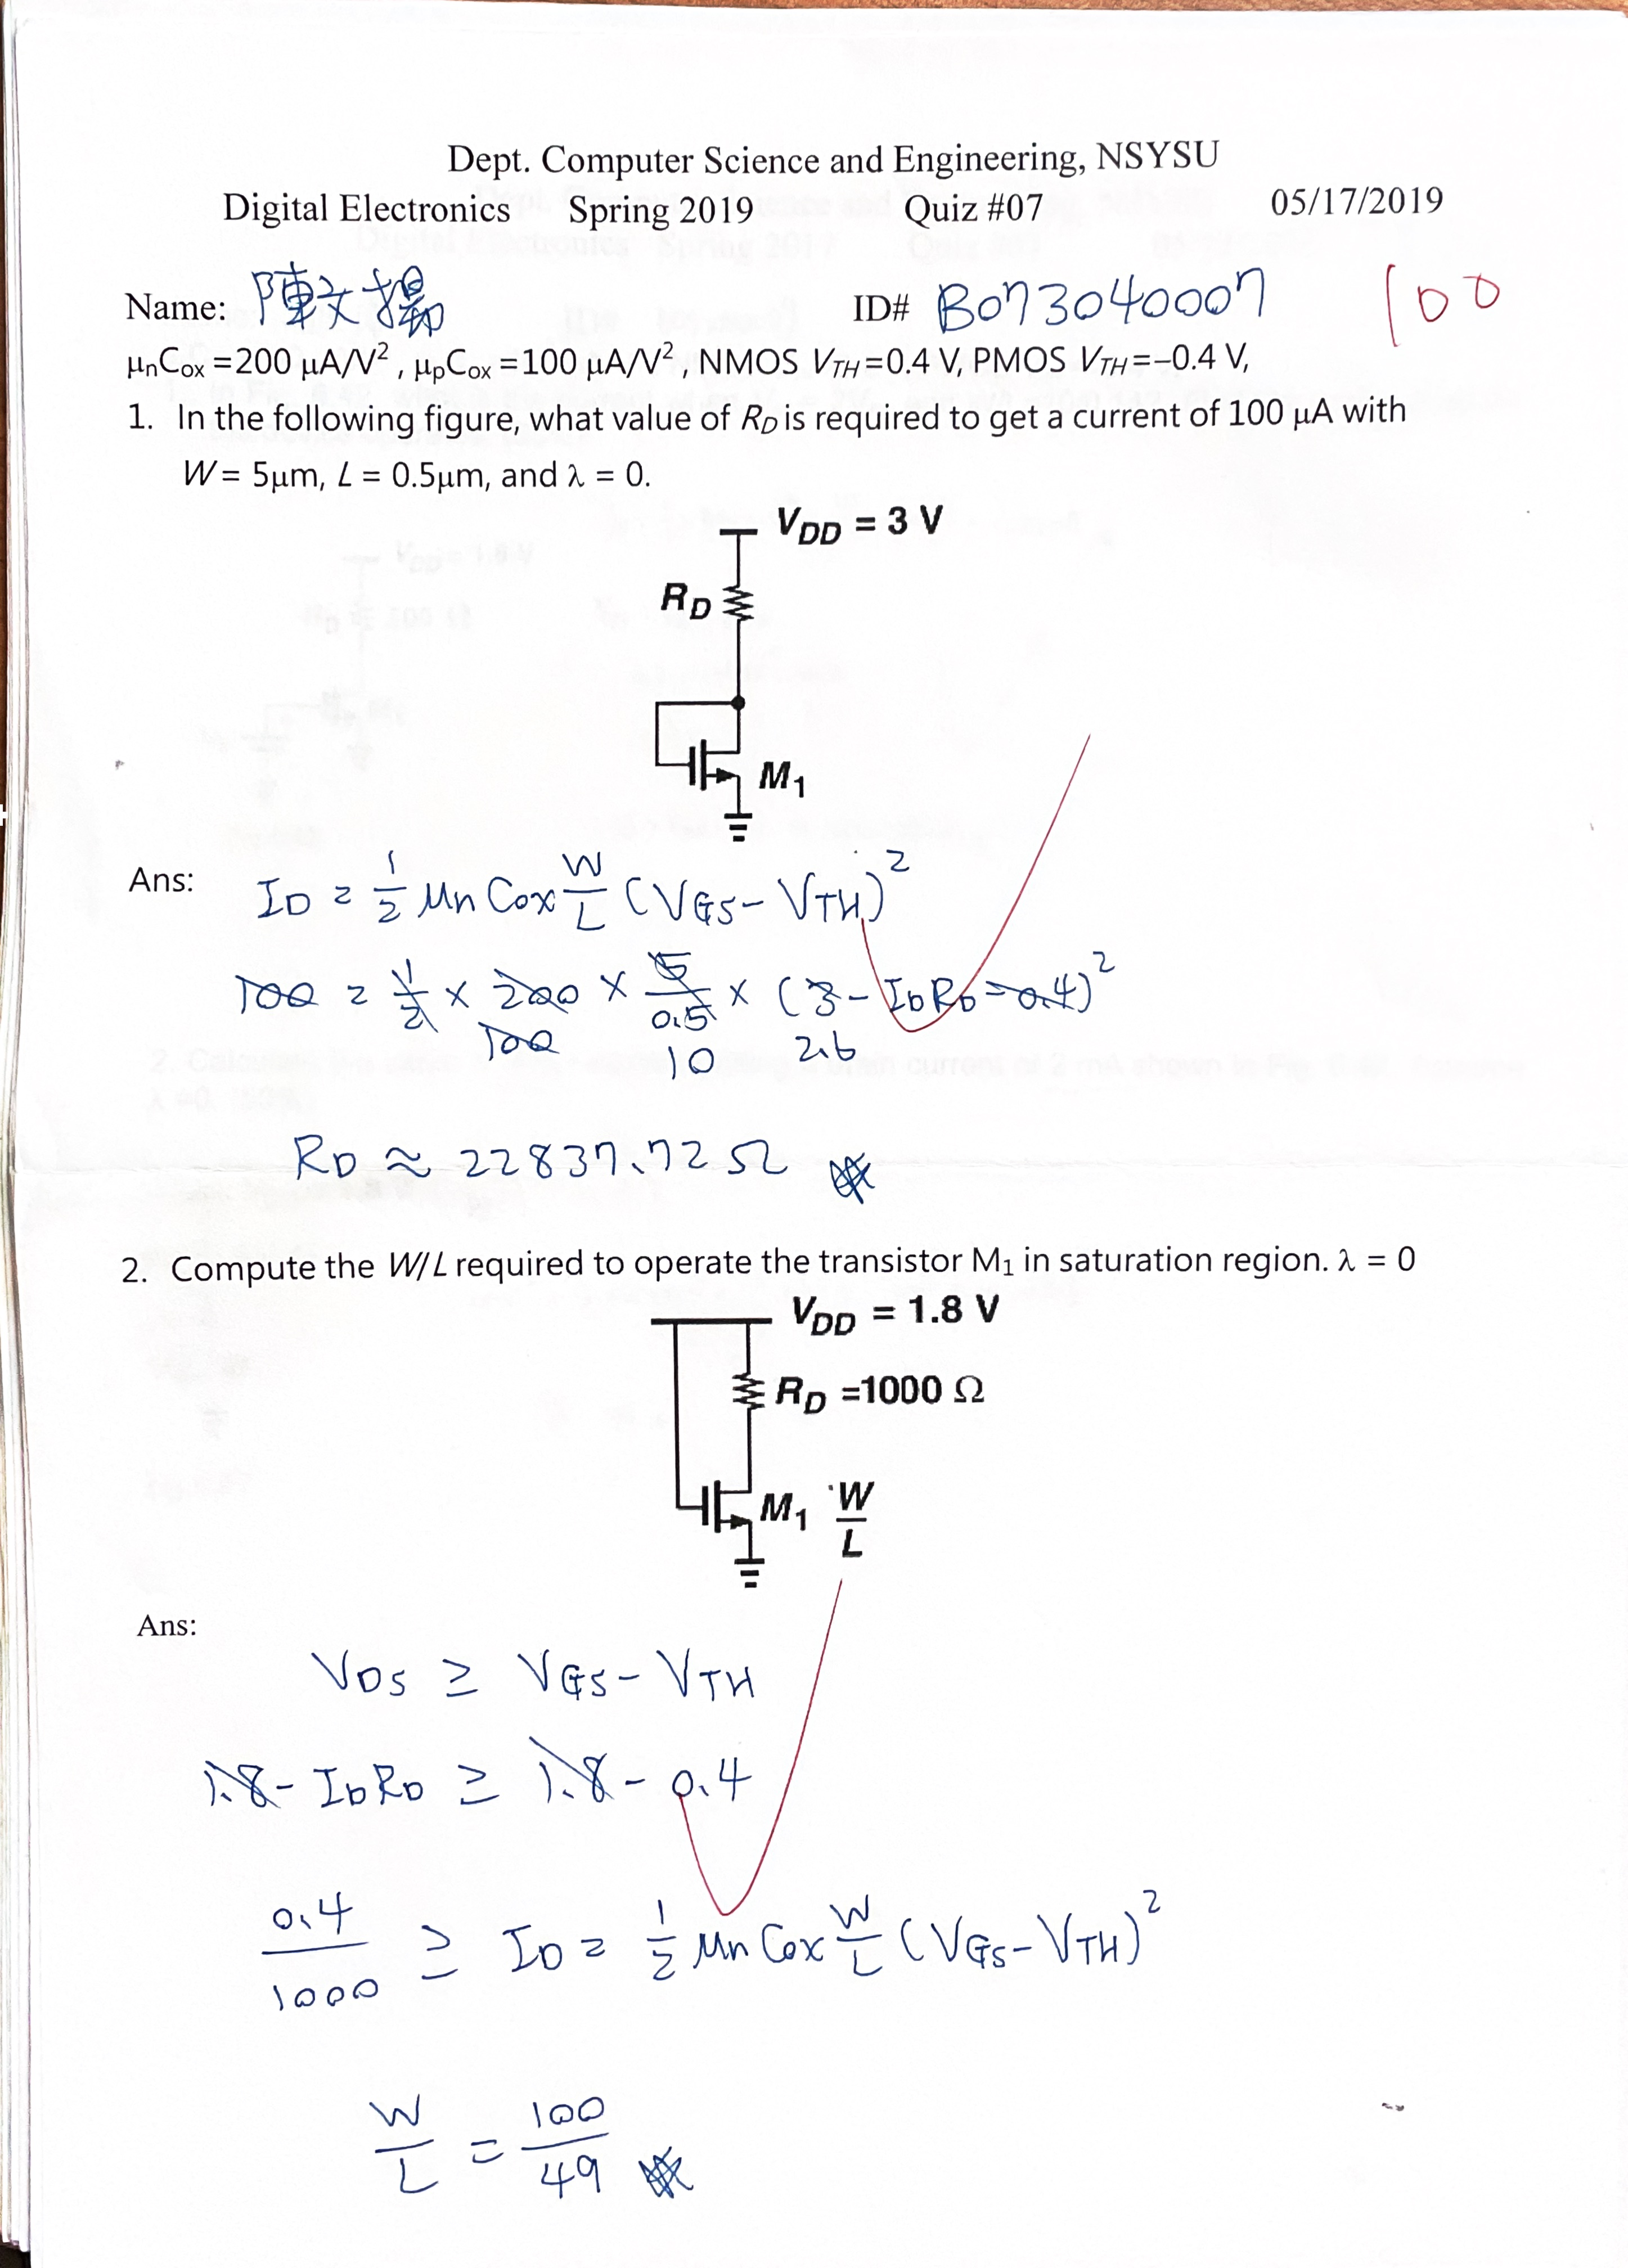 Dept. Computer Science and Engineering, NSYSU
Digital Electronics Spring 2019 Quiz #07 05/17/2019
Name: 陳文揚 ID# B073040007 100
μnCox =200 μA/V², μpCox =100 μA/V², NMOS VTH=0.4 V, PMOS VTH=−0.4 V,
1. In the following figure, what value of RD is required to get a current of 100 μA with
W= 5μm, L = 0.5μm, and λ = 0.
VDD = 3 V
RD
M1
Ans: ID = 1/2 μn Cox W/L (VGS - VTH)²
100 = 1/2 × 200 × 5/0.5 × (3 - IDRD - 0.4)²
100 10 2.6
RD ≈ 22837.72 Ω
2. Compute the W/L required to operate the transistor M1 in saturation region. λ = 0
VDD = 1.8 V
RD =1000 Ω
M1 W/L
Ans:
VDS ≥ VGS - VTH
1.8 - IDRD ≥ 1.8 - 0.4
0.4/1000 ≥ ID = 1/2 μn Cox W/L (VGS - VTH)²
W/L = 100/49